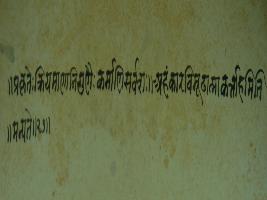 ॥प्रकृतेः क्रियमाणानि गुणैः कर्माणि सर्वशः॥ अहंकारविमूढात्मा कर्ताहमिति
॥मन्यते॥२७॥